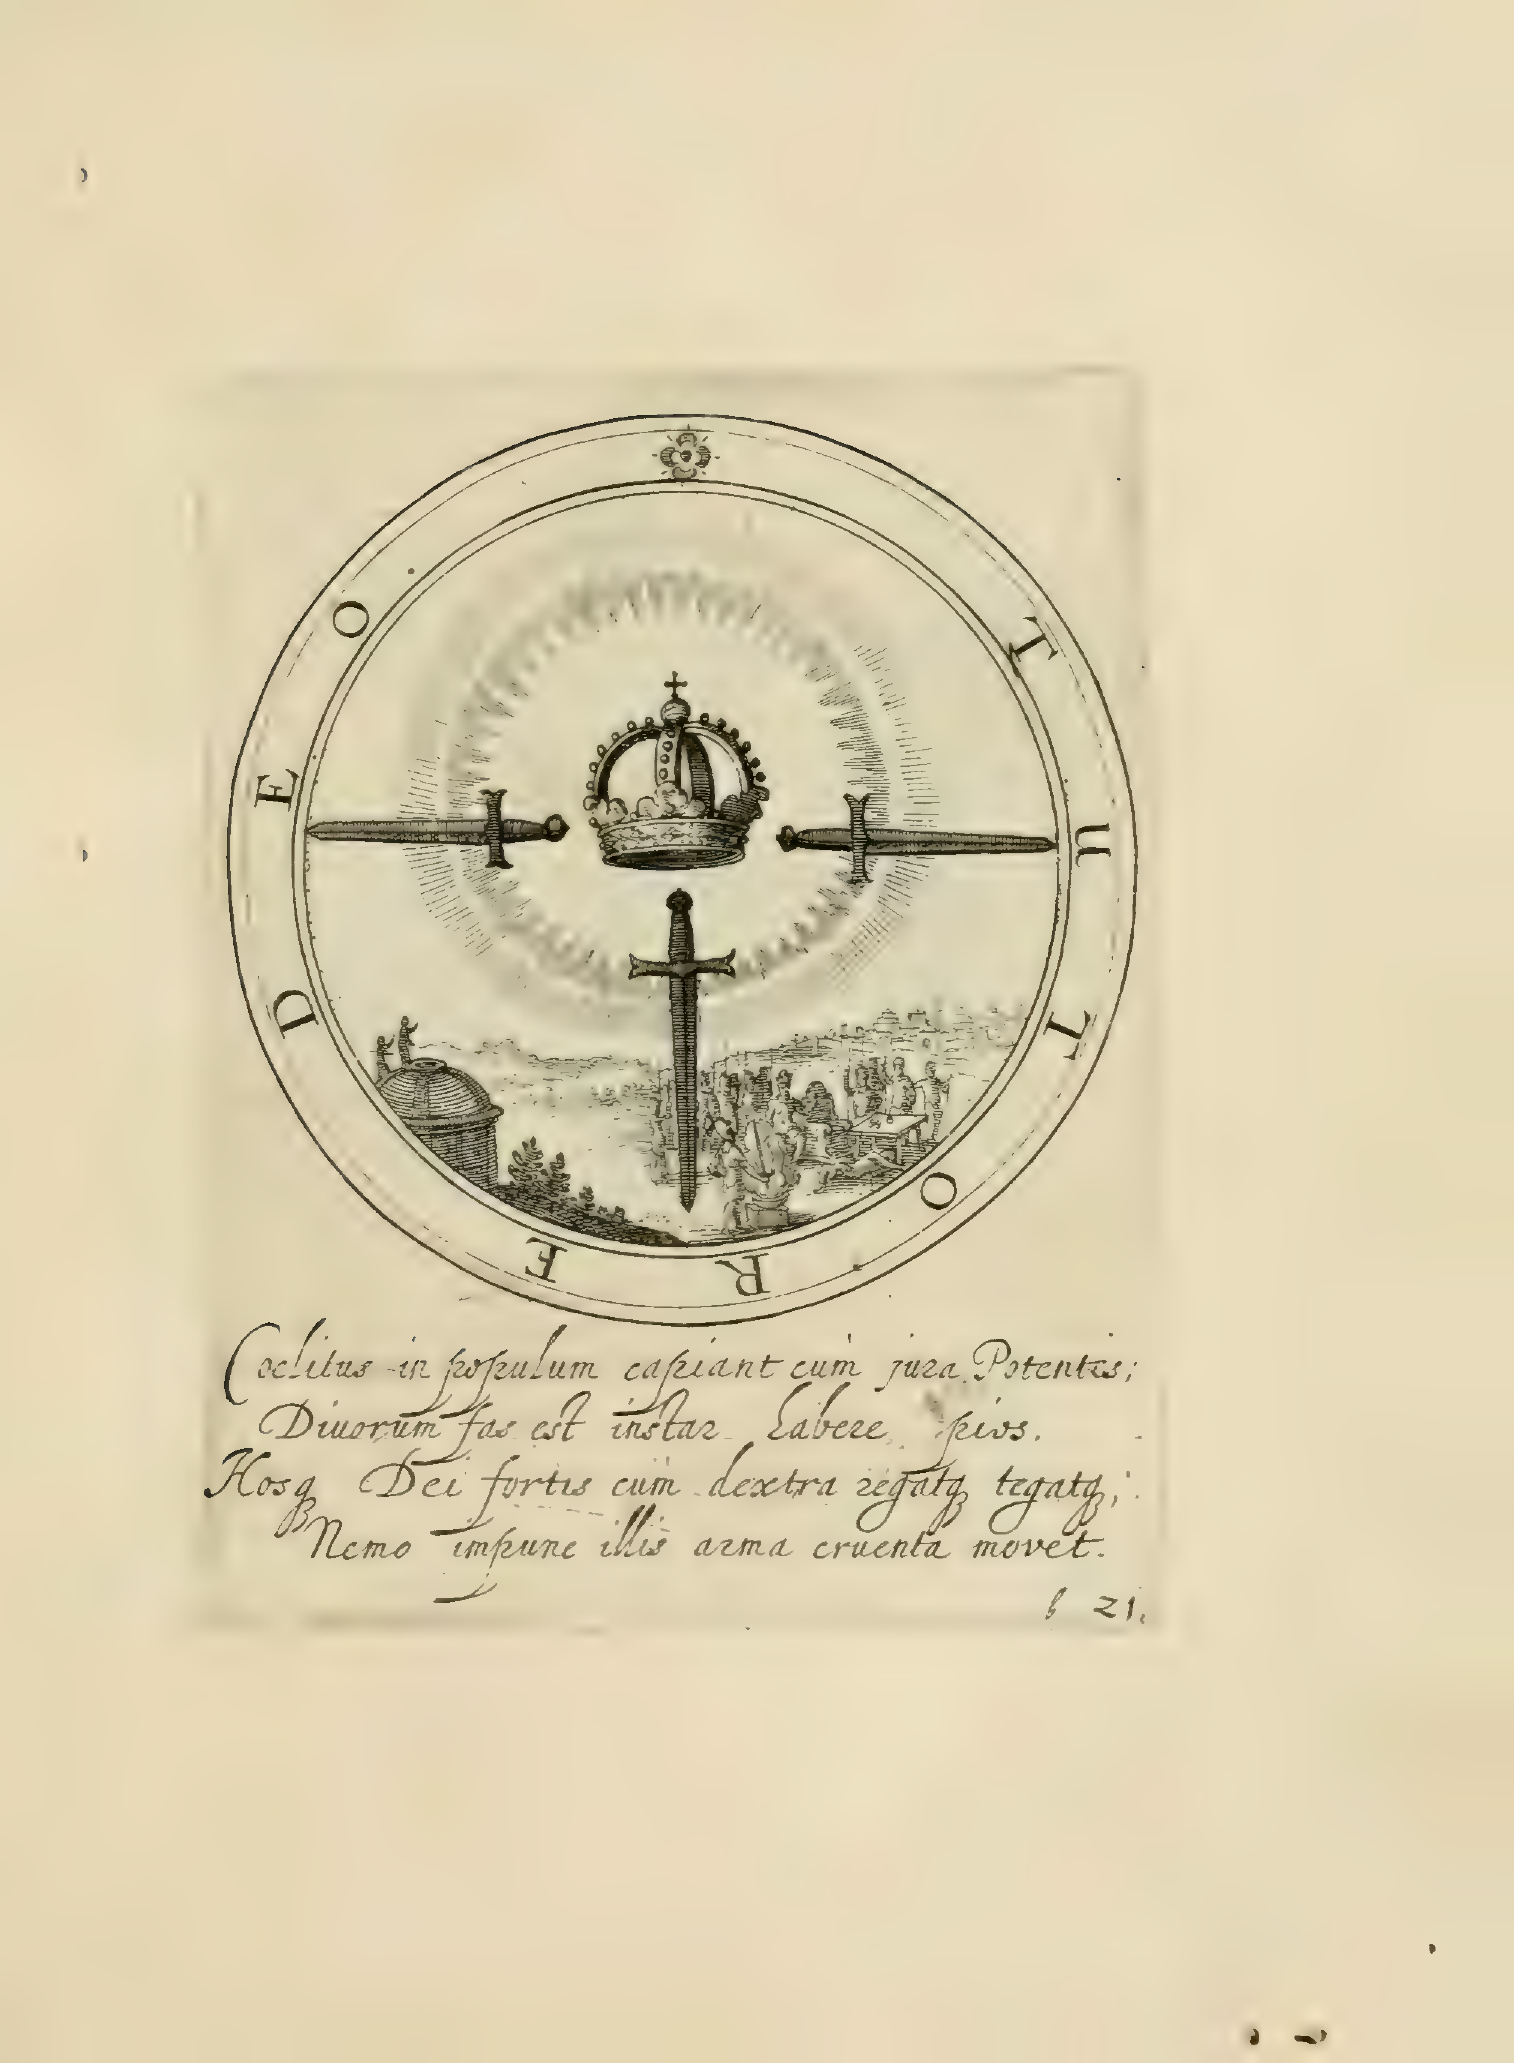 TUTORE DEO
Coelitus in populum capiant cum jura Potentes;
Diuorum fas est instar habere pios.
Hosq; Dei fortis cum dextra regatq; tegatq;;
Nemo impune illis arma cruenta movet.
b 21.